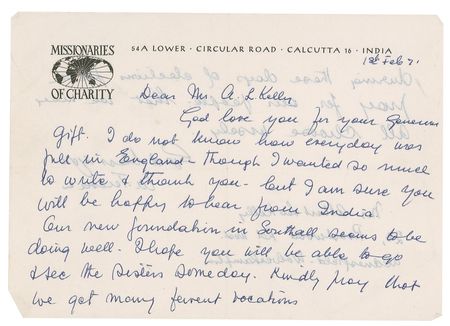 MISSIONARIES
OF CHARITY
54A LOWER · CIRCULAR ROAD · CALCUTTA 16 · INDIA
Feb 71
Dear Mr. A. L Kelly
God love you for your Generous
Gift. I do not know how everyday was
full in England – though I wanted so much
to write & thank you – but I am sure you
will be happy to hear from India.
Our new foundation in Southall seems to be
doing well. I hope you will be able to go
& see the Sisters someday. Kindly pray that
we get many fervent vocations